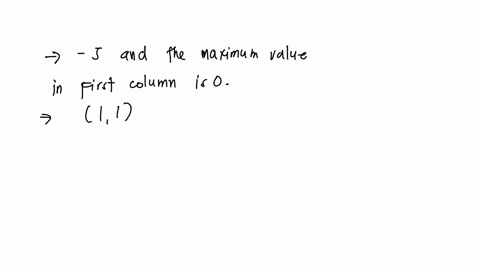 → -5 and the maximum value
in first column is 0.
⇒ (1,1)